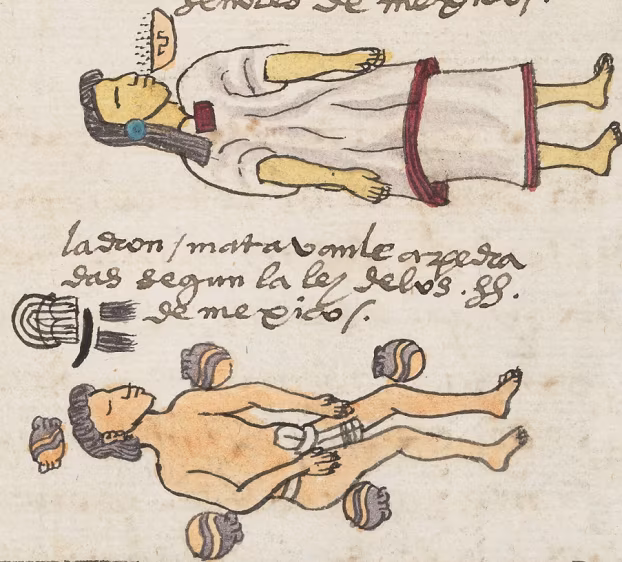 señores de mexico/.
ladron / matavanle a pedra
das segun la ley delos .ss.
de mexico/.